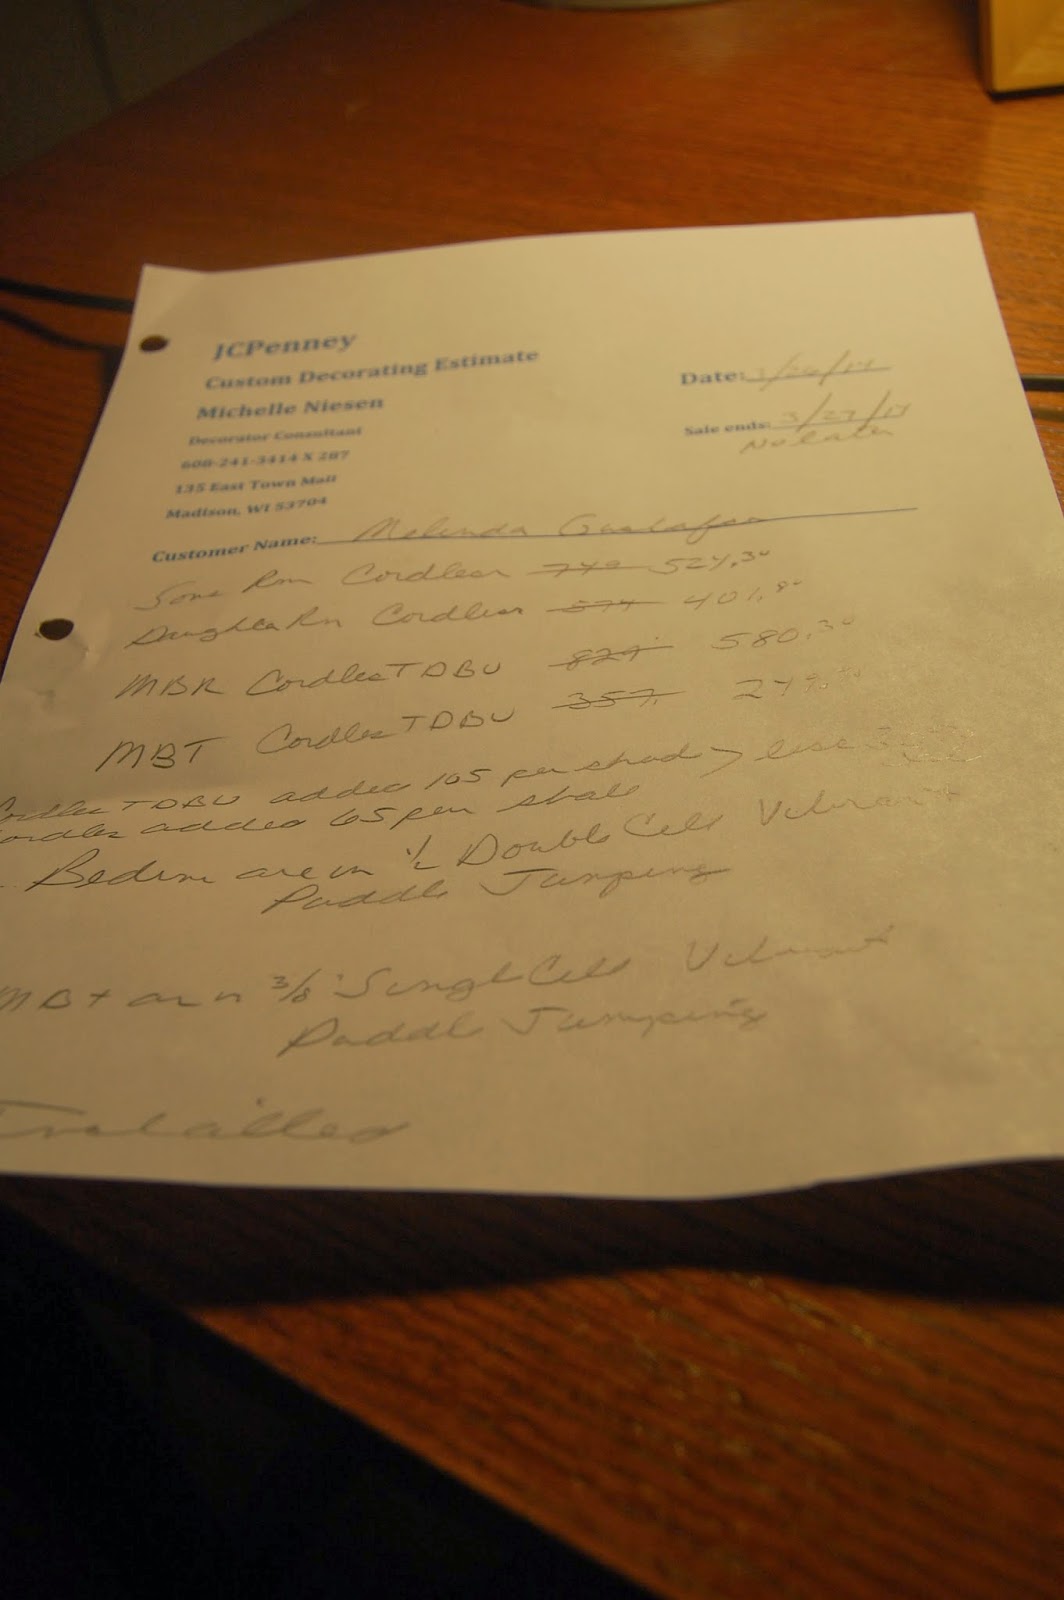 JCPenney
Custom Decorating Estimate
Michelle Niesen
Decorator Consultant
608-241-3414 X 287
135 East Town Mall
Madison, WI 53704
Date: 3/26/14
Sale ends: 3/27/14
No later
Customer Name: Melinda Gustafson
Sons Rm Cordless 749 524.30
Daughter Rm Cordless 574 401.80
MBR Cordless TDBU 829 580.30
MBT Cordless TDBU 357
Cordless TDBU added 105 per shade > less
Cordless added 65 per shade
Bedrm are in 1/2 Double Cell
Puddle Jumping
MBt are in 3/8 Single Cell
Puddle Jumping
Installed